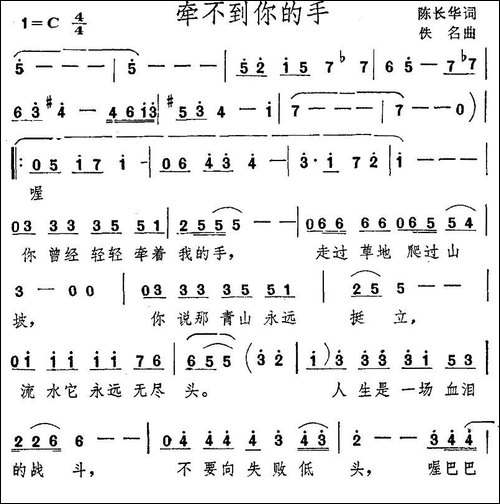 牵不到你的手
1=C 4/4
陈长华词
佚名曲
5 — — | 5 — — — | 5 2 1 5 7 ♭7 | 6 5 — 7 ♭7
6 3 #4 — 4 6 1 3 | #5 3 — — | 7 — — — | 7 — — 0 )
‖: 0 5 1 7 1 — | 0 6 4 3 4 — | 3 · 1 7 2 | 1 — — —
喔
0 3 3 3 3 5 5 1 | 2 5 5 5 — — | 0 6 6 6 6 0 6 5 5 4
你 曾经 轻轻 牵着 我的手， 走过 草地 爬过山
3 — 0 0 | 0 3 3 3 3 5 5 1 | 2 5 5 — — |
坡， 你 说那 青山 永远 挺 立，
0 1 1 1 1 1 7 6 | 6 5 5 — ( 3 2 | 1 ) 3 3 3 3 1 5 3
流 水它 永远 无尽 头。 人 生是 一场 血泪
2 2 6 6 — — | 0 4 4 4 4 3 4 3 | 2 — — 3 4 4
的战 斗， 不 要向 失败 低 头， 喔巴巴